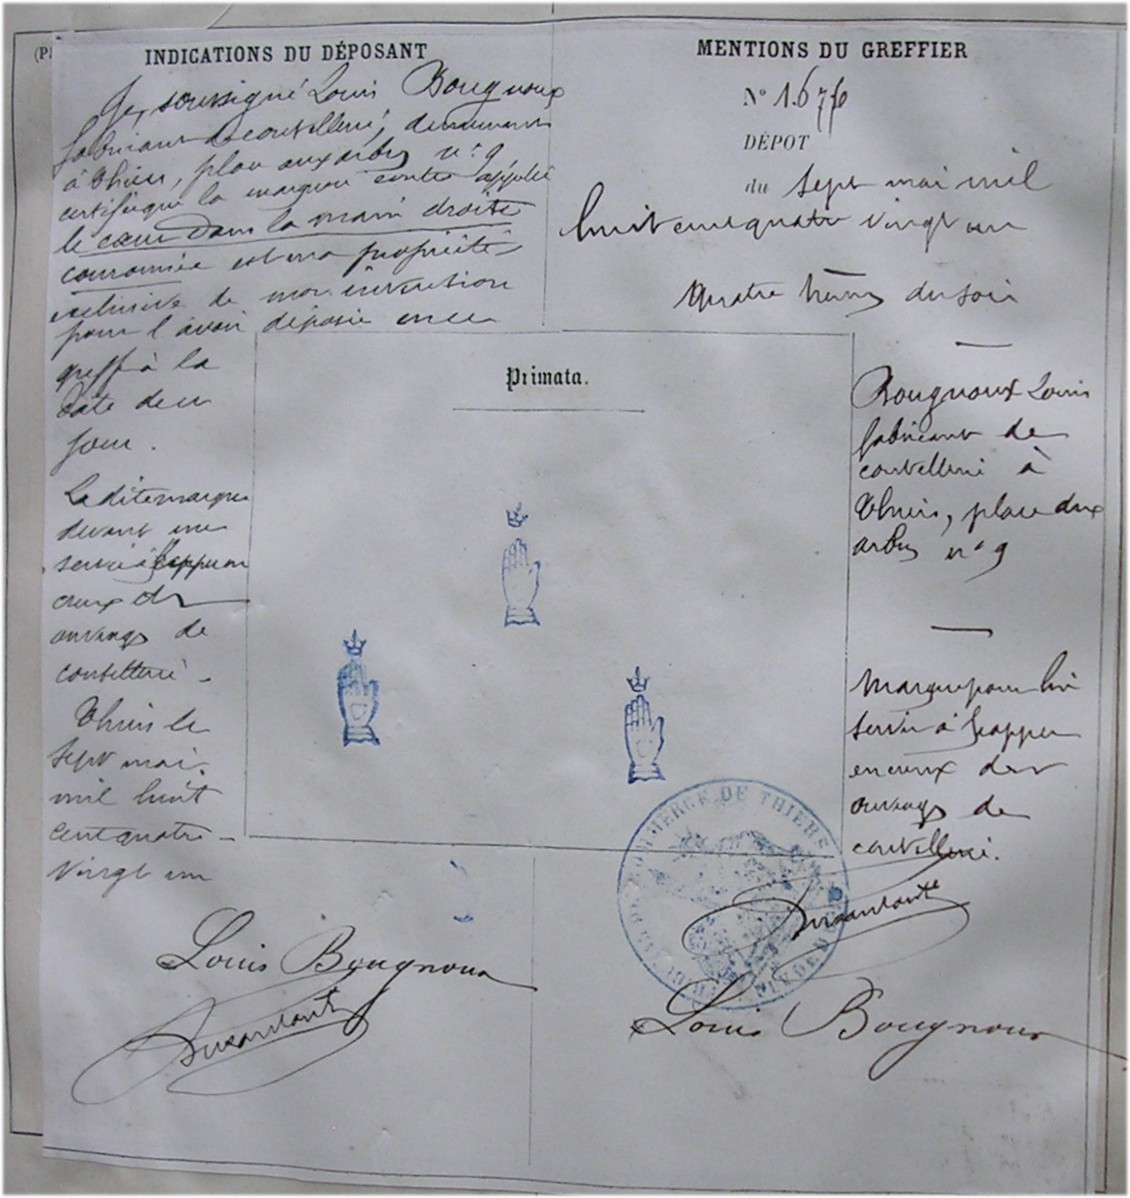 INDICATIONS DU DÉPOSANT
Je, soussigné Louis Bougnoux
fabricant de coutellerie, demeurant
à Thiers, place aux arbres n° 9
certifie que la marque contre appelée
le cœur dans la main droite
couronnée est ma propriété
exclusive de mon invention
pour l'avoir déposée en ce
greffe à la
date de ce
jour.
La dite marque
devant me
servir à frapper en
creux des
ouvrages de
coutellerie.
Thiers le
sept mai
mil huit
cent quatre
vingt un
Louis Bougnoux
MENTIONS DU GREFFIER
N° 1676
DÉPOT
du sept mai mil
huit cent quatre vingt un
quatre heures du soir
Bougnoux Louis
fabricant de
coutellerie à
Thiers, place aux
arbres n° 9
Marque pour lui
servir à frapper
en creux des
ouvrages de
coutellerie.
Louis Bougnoux
Primata.
COMMERCE DE THIERS